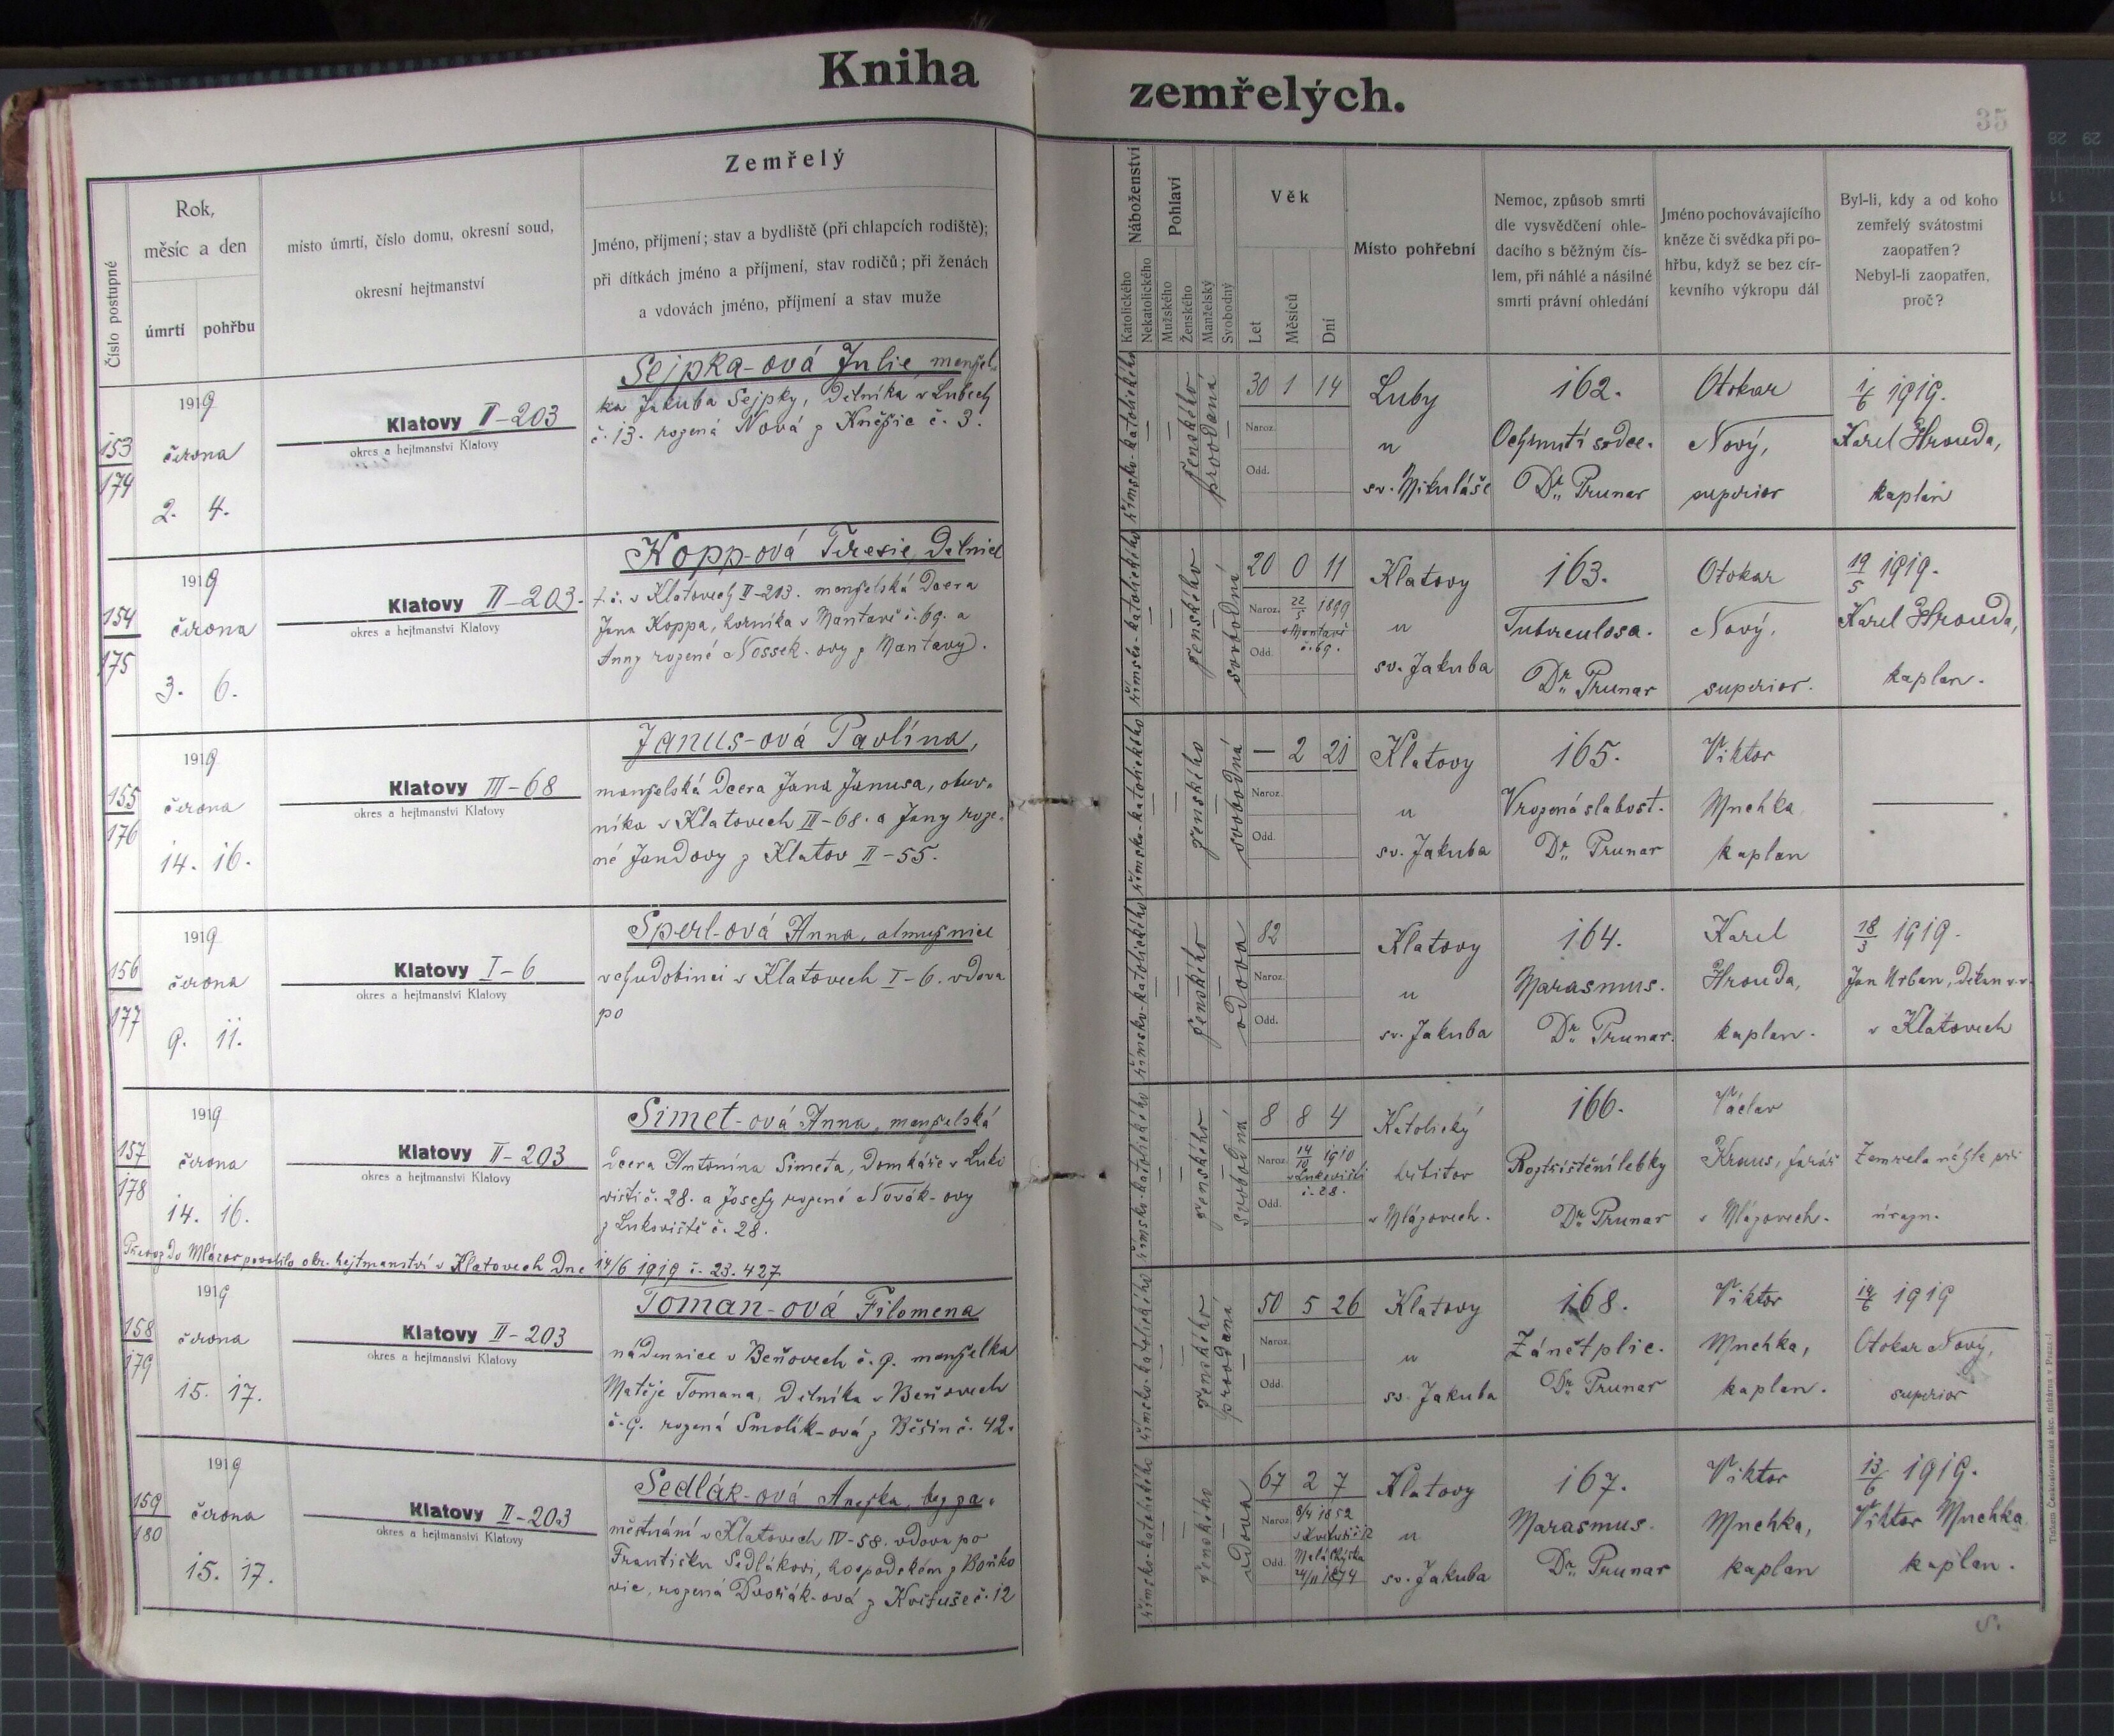 Kniha zemřelých.
35
Číslo postupné
Rok,
měsíc a den
úmrtí pohřbu
místo úmrtí, číslo domu, okresní soud,
okresní hejtmanství
Zemřelý
Jméno, příjmení; stav a bydliště (při chlapcích rodiště);
při dítkách jméno a příjmení, stav rodičů; při ženách
a vdovách jméno, příjmení a stav muže
Náboženství
Katolického
Nekatolického
Pohlaví
Mužského
Ženského
Manželský
Svobodný
Věk
Let
Měsíců
Dní
Místo pohřební
Nemoc, způsob smrti
dle vysvědčení ohle-
dacího s běžným čís-
lem, při náhlé a násilné
smrti právní ohledání
Jméno pochovávajícího
kněze či svědka při po-
hřbu, když se bez cír-
kevního výkropu dál
Byl-li, kdy a od koho
zemřelý svátostmi
zaopatřen?
Nebyl-li zaopatřen,
proč?
153
174
1919
června
2. 4.
Klatovy II-203
okres a hejtmanství Klatovy
Sejpka-ová Julie, manžel-
ka Jakuba Sejpky, dělníka v Lubech
č. 13. rozená Nová z Kněžic č. 3.
římsko-katolického
ženského
provdaná
30 1 14
Naroz.
Odd.
Luby
u
sv. Mikuláše
162.
Ochrnutí srdce.
Dr. Prunar
Otokar
Nový,
superior
1/6 1919.
Karel Hrouda,
kaplan
154
175
1919
června
3. 6.
Klatovy II-203.
okres a hejtmanství Klatovy
Kopp-ová Terezie, dělnice
t. č. v Klatovech II-203. manželská dcera
Jana Koppa, horníka v Mantavě č. 69. a
Anny rozené Nossek-ovy z Mantavy.
římsko-katolického
ženského
svobodná
20 0 11
Naroz. 22/5 1899
v Mantavě
č. 69.
Odd.
Klatovy
u
sv. Jakuba
163.
Tuberculosa.
Dr. Prunar
Otokar
Nový,
superior.
19/5 1919.
Karel Hrouda,
kaplan.
155
176
1919
června
14. 16.
Klatovy III-68
okres a hejtmanství Klatovy
Janus-ová Pavlína,
manželská dcera Jana Janusa, obuv-
níka v Klatovech III-68. a Jany roze-
né Jandovy z Klatov II-55.
římsko-katolického
ženského
svobodná
— 2 21
Naroz.
Odd.
Klatovy
u
sv. Jakuba
165.
Vrozená slabost.
Dr. Prunar
Viktor
Muchka
kaplan
156
177
1919
června
9. 11.
Klatovy I-6
okres a hejtmanství Klatovy
Sperl-ová Anna, almužnice
v chudobinci v Klatovech I-6. vdova
po
římsko-katolického
ženského
vdova
82
Naroz.
Odd.
Klatovy
u
sv. Jakuba
164.
Marasmus.
Dr. Prunar.
Karel
Hrouda,
kaplan.
18/3 1919.
Jan Urban, děkan
v Klatovech
157
178
1919
června
14. 16.
Klatovy II-203
okres a hejtmanství Klatovy
Simet-ová Anna, manželská
dcera Antonína Simeta, domkáře v Luko
višti č. 28. a Josefy rozené Novák-ovy
z Lukoviště č. 28.
Převoz do Mlázov povolilo okr. hejtmanství v Klatovech dne 14/6 1919 č. 23.427
římsko-katolického
ženského
svobodná
8 8 4
Naroz. 14/10 1910
v Lukovišti
č. 28.
Odd.
Katolický
hřbitov
v Mlázovech.
166.
Roztříštění lebky
Dr. Prunar
Václav
Kraus, farář
v Mlázovech.
Zemřela náhle při
úrazu.
158
179
1919
června
15. 17.
Klatovy II-203
okres a hejtmanství Klatovy
Toman-ová Filomena
nádennice v Beňovech č. 9. manželka
Matěje Tomana, dělníka v Beňovech
č. 9. rozená Smolík-ová z Běšin č. 42.
římsko-katolického
ženského
provdaná
50 5 26
Naroz.
Odd.
Klatovy
u
sv. Jakuba
168.
Zánět plic.
Dr. Prunar
Viktor
Muchka,
kaplan.
14/6 1919
Otokar Nový,
superior
159
180
1919
června
15. 17.
Klatovy II-203
okres a hejtmanství Klatovy
Sedlák-ová Anežka, bez za-
městnání v Klatovech IV-58. vdova po
Františku Sedlákovi, hospodském z Boňko
vic, rozená Dvořák-ová z Kvítuše č. 12
římsko-katolického
ženského
vdova
67 2 7
Naroz. 8/4 1852
Odd.
24/11 1874
Klatovy
u
sv. Jakuba
167.
Marasmus.
Dr. Prunar
Viktor
Muchka,
kaplan
13/6 1919.
Viktor Muchka
kaplan.
Tiskem Českoslovanské akc. tiskárna v Praze.